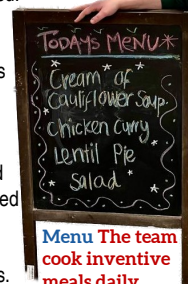 TODAYS MENU*
Cream of
Cauliflower Soup
Chicken Curry
Lentil Pie
Salad
Menu The team
cook inventive
meals daily